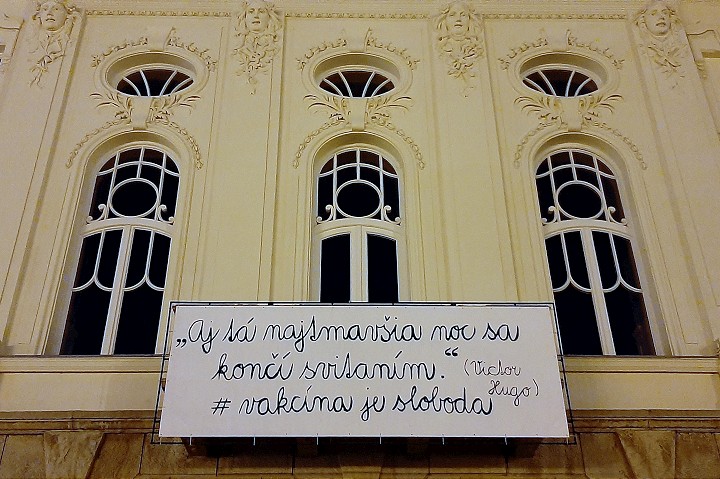 „Aj tá najtmavšia noc sa
končí svitaním.“ (Victor Hugo)
# vakcína je sloboda